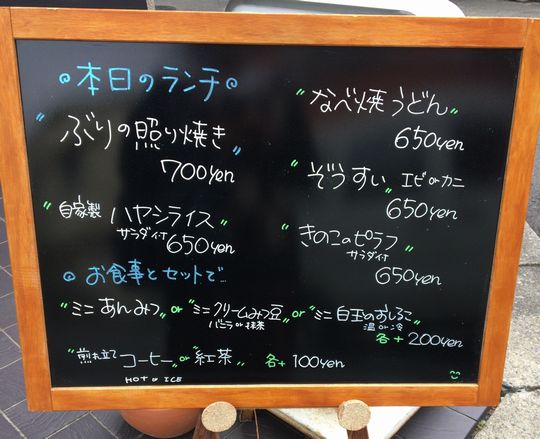 本日のランチ
"ぶりの照り焼き"
700yen
"自家製 ハヤシライス"
サラダ付
650yen
"なべ焼うどん"
650yen
"ぞうすい エビorカニ"
650yen
"きのこのピラフ"
サラダ付
650yen
お食事とセットで…
"ミニあんみつ" or "ミニクリームみつ豆" or "ミニ白玉のおしるこ"
バニラor抹茶
温or冷
各+200yen
"煎れ立てコーヒー" or "紅茶" 各+100yen
HOT or ICE